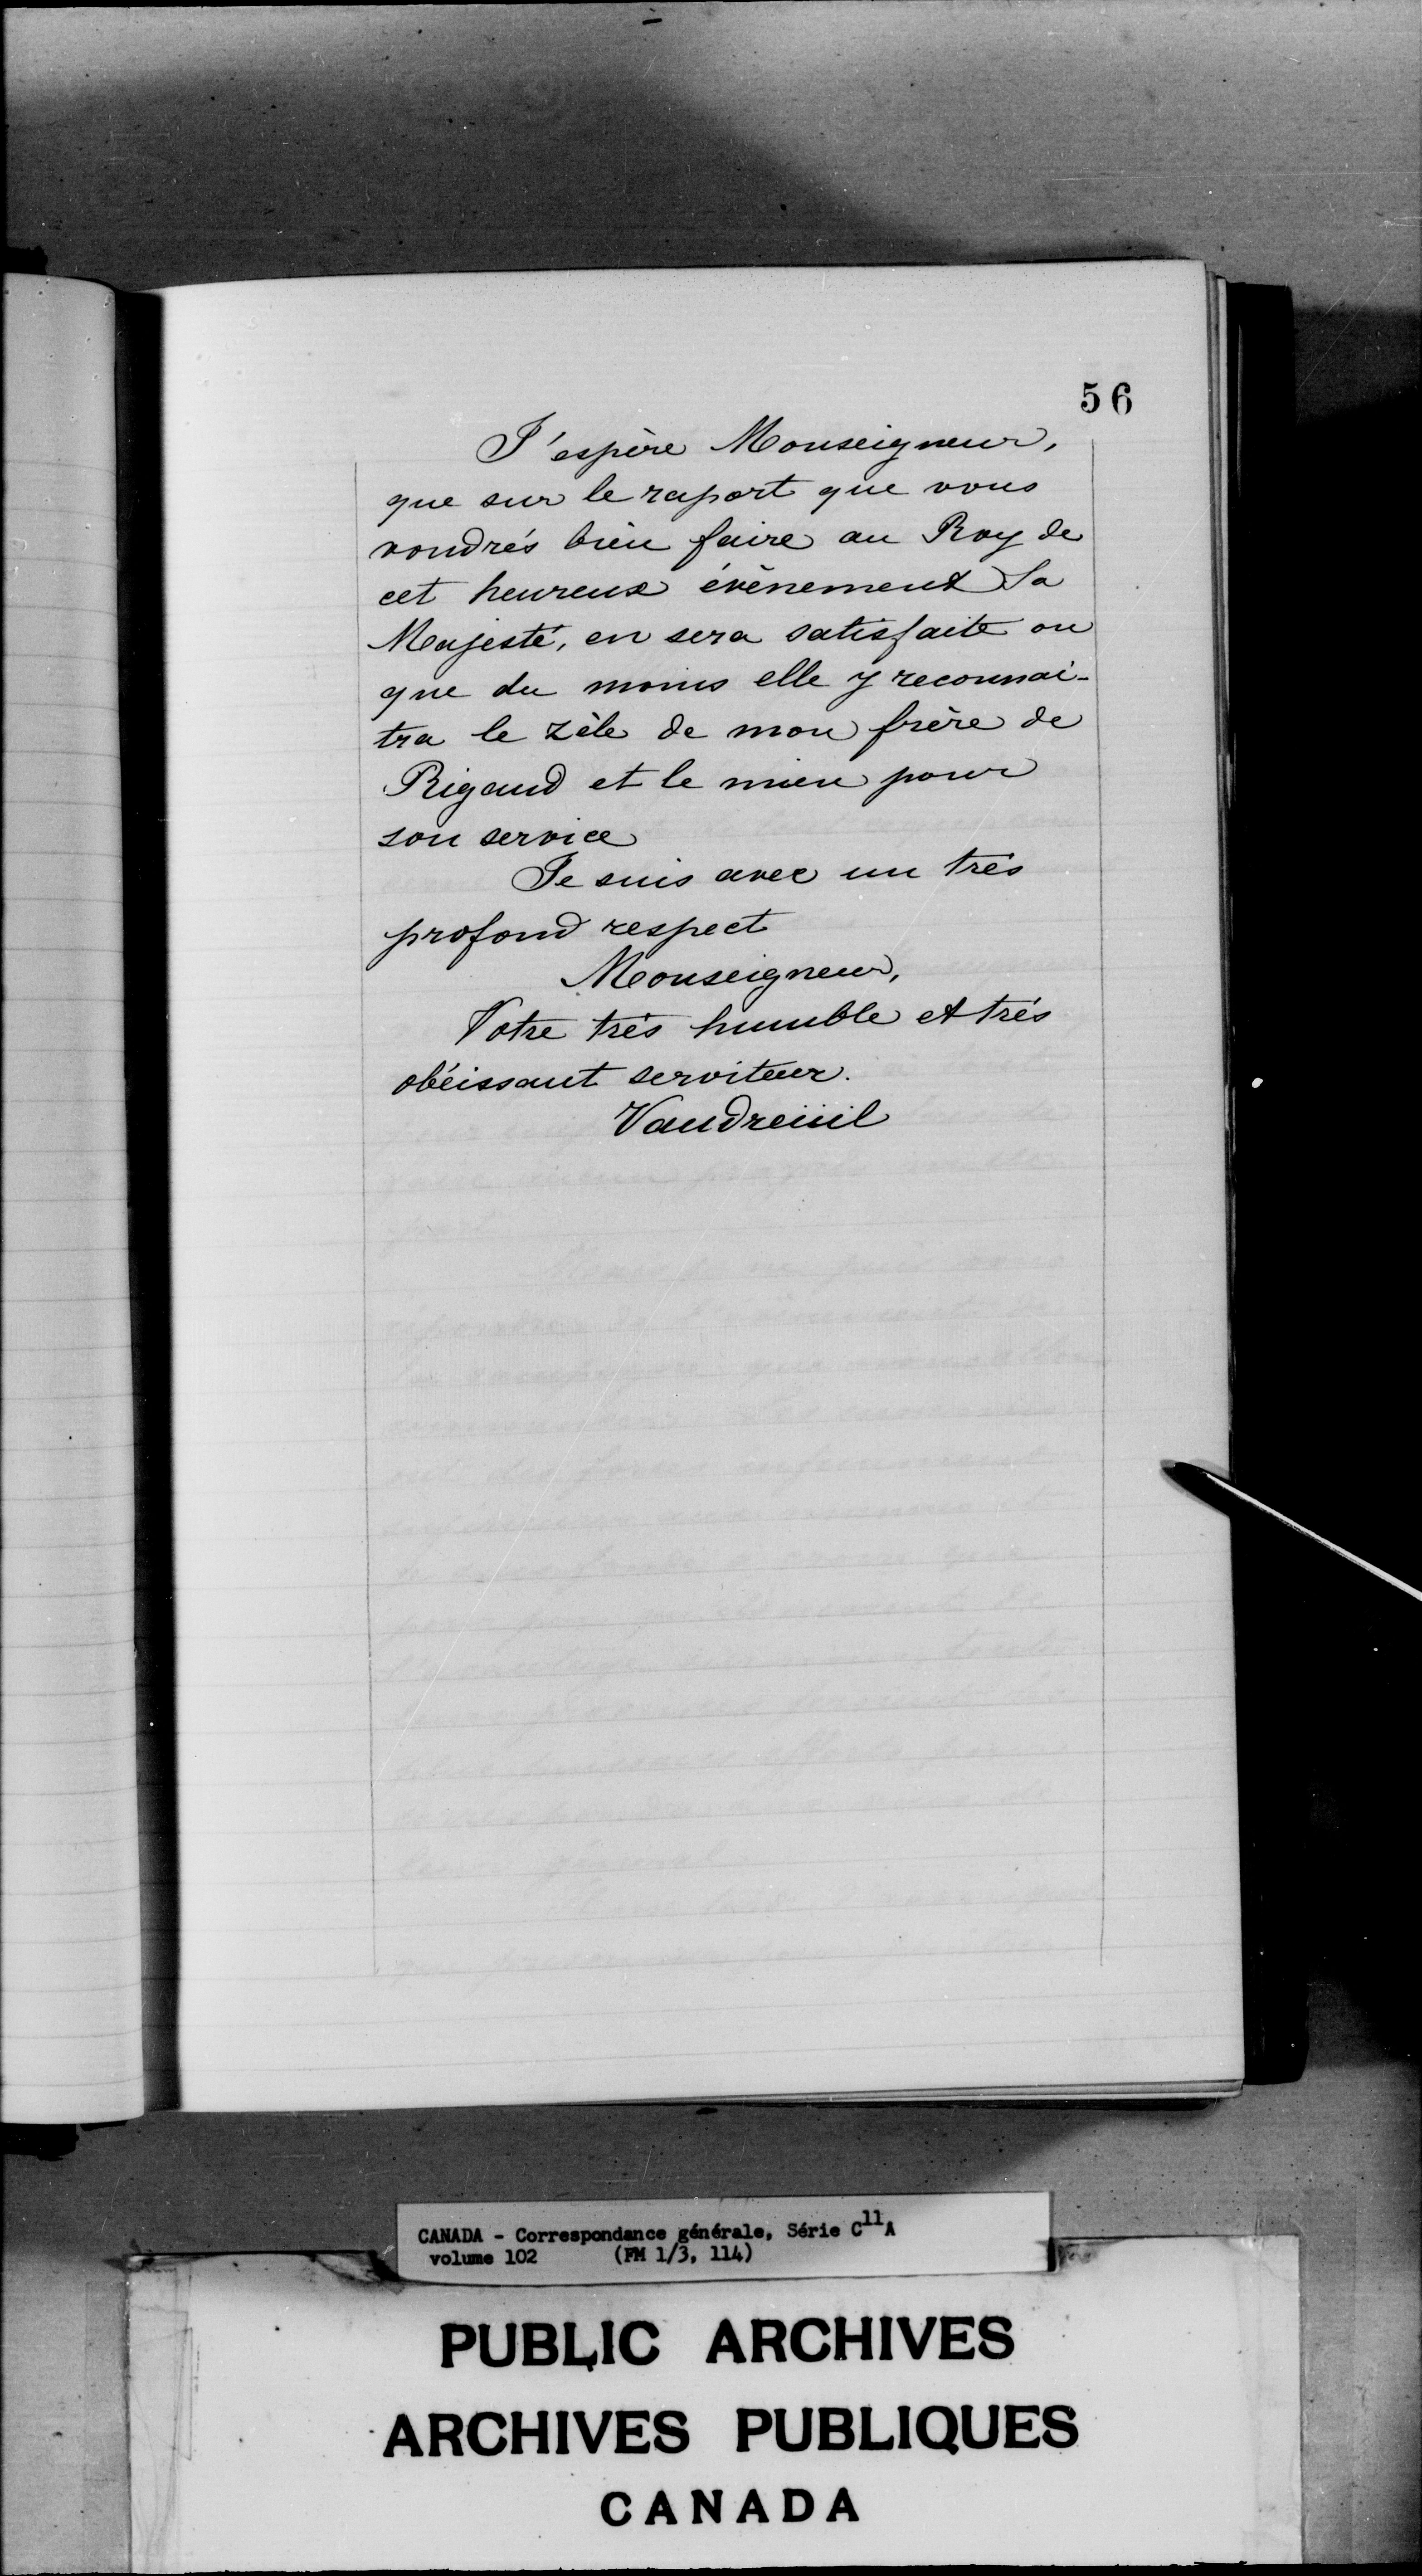 56
J'espère Monseigneur,
que sur le raport que vous
voudrés bien faire au Roy de
cet heureux évènement Sa
Majesté, en sera satisfaite ou
que du moins elle y reconnai-
tra le zèle de mon frère de
Rigaud et le mien pour
son service
Je suis avec un trés
profond respect
Monseigneur,
Votre trés humble et trés
obéissant serviteur.
Vaudreüil
CANADA - Correspondance générale, Série C11A
volume 102 (FM 1/3, 114)
PUBLIC ARCHIVES
ARCHIVES PUBLIQUES
CANADA